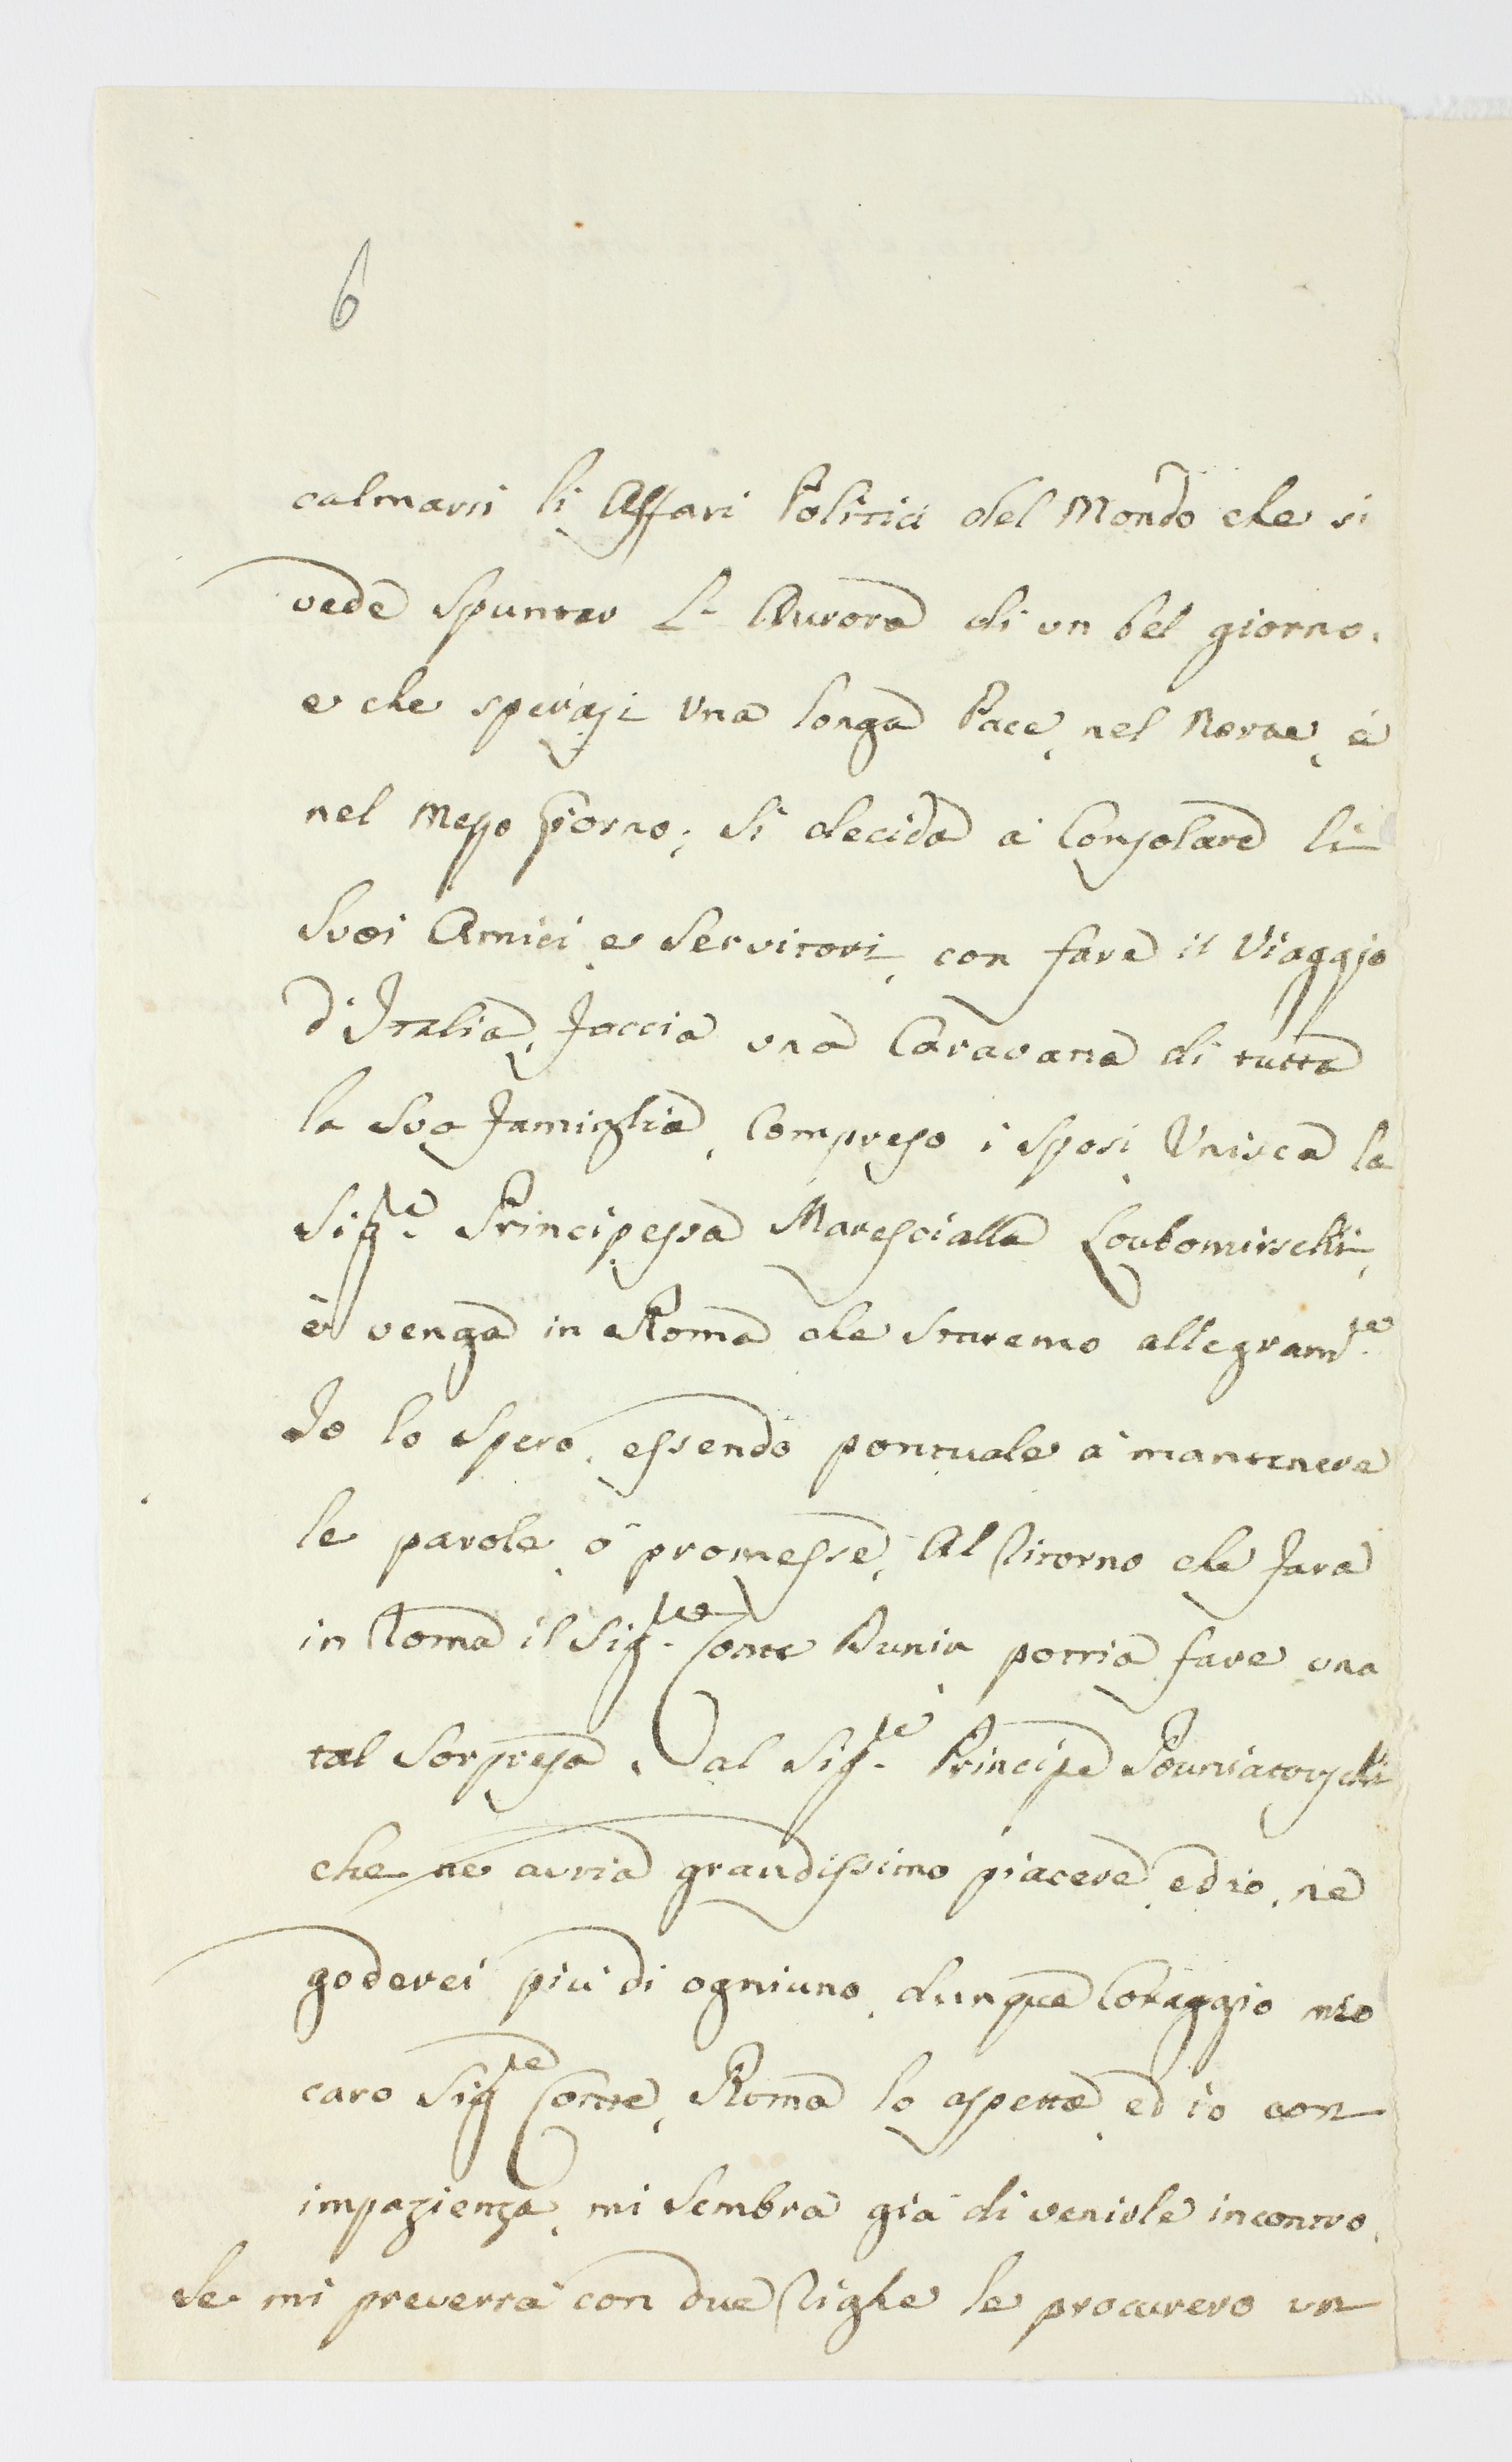 6
calmarsi li Affari Politici del Mondo che si
vede Spuntar L'Aurora di un bel giorno.
e che sperasi una longa Pace, nel Norte, é
nel Mezzo Giorno; Si decida a Consolare li
Suoi Amici, e Servitori, con fare il Viaggio
d'Italia, faccia una Caravana di tutta
la Sua famiglia, Compreso i Sposi, Unisca la
Sig.ra Principessa Marescialla Loubomirschi,
è venga in Roma che Staremo allegram.te
Io lo Spero, essendo pontuale a mantenere
le parole, ò promesse, Al Ritorno che fara
in Roma il Sig.re Conte potria fare una
tal Sorpresa, al Sig.re Principe Pouniatouschi
che ne avria grandissimo piacere, ed io, ne
goderei più di ogniuno, dunque Coraggio mio
caro Sig.re Conte, Roma lo aspetta, ed io con
impazienza, mi Sembra già di venirle incontro,
Se mi preverrà con due Righe le procurero un